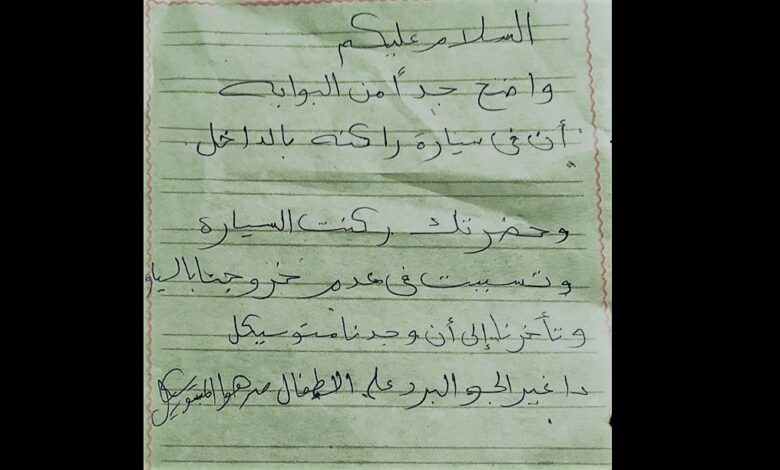 السلام عليكم
واضح جداً من البوابه
أن فى سيارة راكنه بالداخل.
وحضرتك ركنت السيارة
وتسببت فى عدم خروجنا
وتأخرنا إلى أن وجدنا متوسيكل
دا غير الجو البرد على الاطفال من هوا